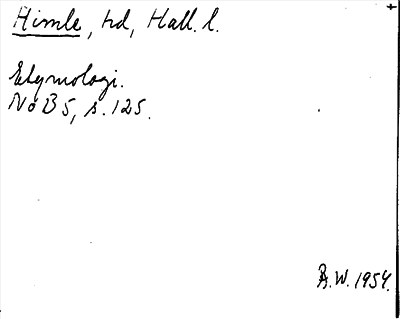 Himle, hd, Hall. l.
Etymologi.
NoB 5, s. 125.
B.W. 1954.